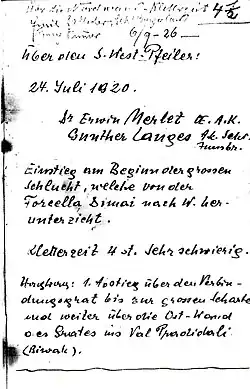 4 ½
6/9-26
Über den S-West-Pfeiler:
24. Juli 1920.
Dr Erwin Merlet Œ.A.K.
Günther Langes
Innsbr.
Einstieg am Beginn der grossen
Schlucht, welche von der
Forcella Dimai nach W. her-
unterzieht.
Kletterzeit 4 st. Sehr schwierig.
1. Abstieg über den Verbin-
dungsgrat bis zur grossen Scharte
und weiter über die Ost-Wand
des Grates ins Val Pradidali.
(Biwak).